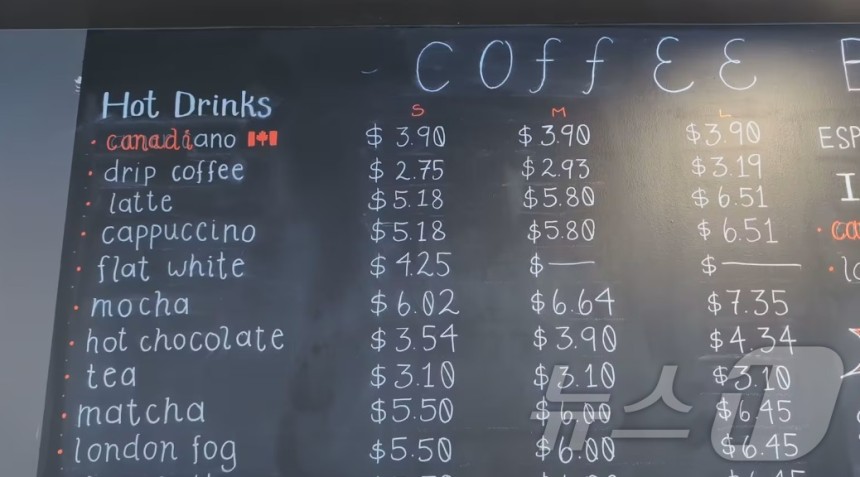 COffEE
Hot Drinks S M L
· canadiano $ 3.90 $ 3.90 $3.90 ESP
· drip coffee $ 2.75 $2.93 $3.19
· latte $5.18 $5.80 $6.51
· cappuccino $5.18 $5.80 $6.51 · ca
· flat white $ 4.25 $— $—
· mocha $6.02 $6.64 $7.35
· hot chocolate $3.54 $3.90 $4.34
· tea $3.10 $3.10 $3.10
· matcha $5.50 $6.00 $6.45
· london fog $5.50 $6.00 $6.45
뉴스1